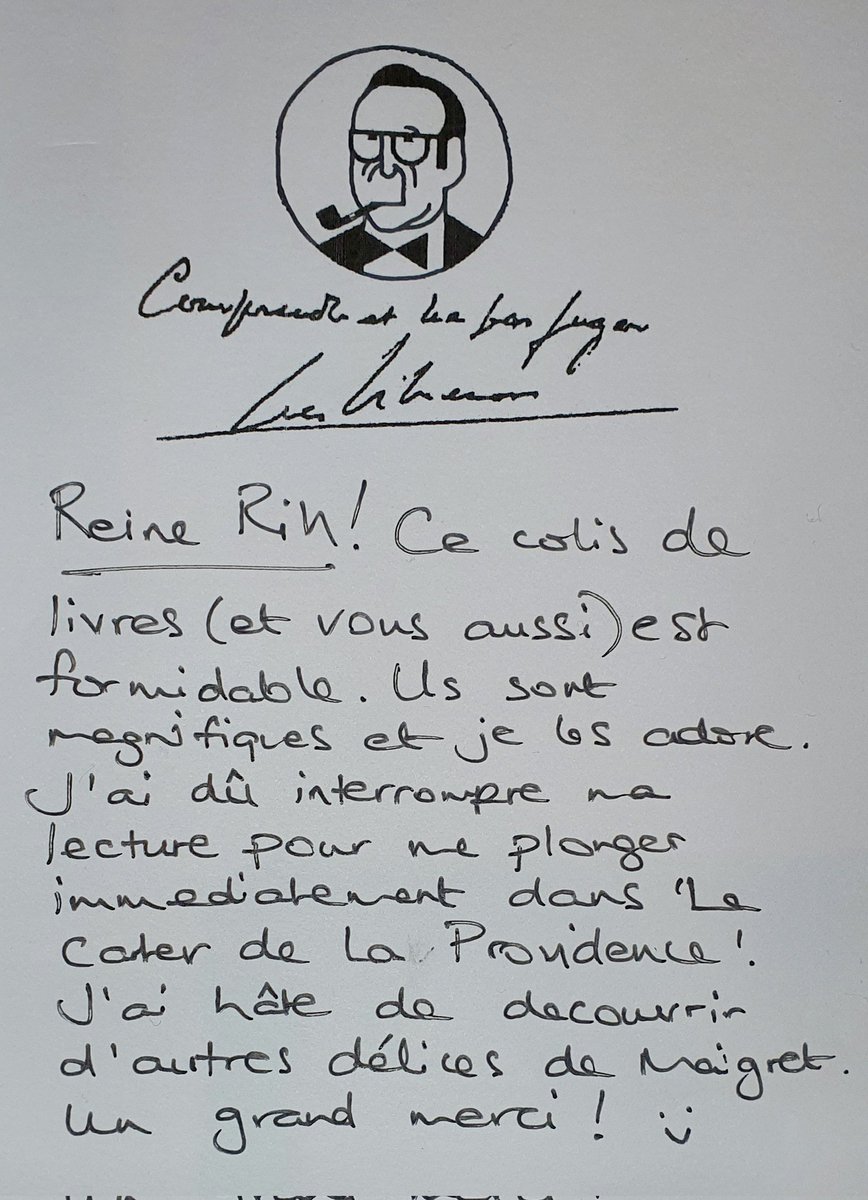 Comprendre et ne pas juger
Reine Rin! Ce colis de
livres (et vous aussi) est
formidable. Ils sont
magnifiques et je les adore.
J'ai dû interrompre ma
lecture pour me plonger
immediatement dans 'Le
Cater de La Providence'.
J'ai hâte de decouvrir
d'autres délices de Maigret.
Un grand merci! :)